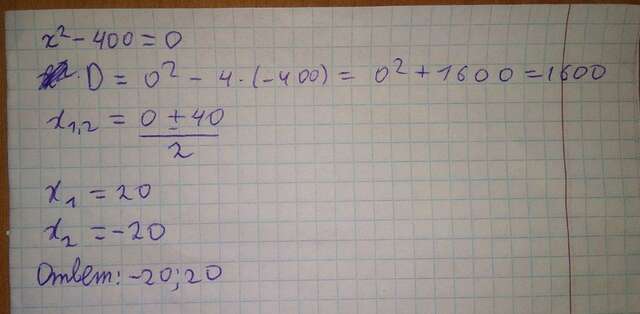 x² - 400 = 0
D = 0² - 4 · (-400) = 0² + 1600 = 1600
x₁,₂ = (0 ± 40) / 2
x₁ = 20
x₂ = -20
Ответ: -20; 20